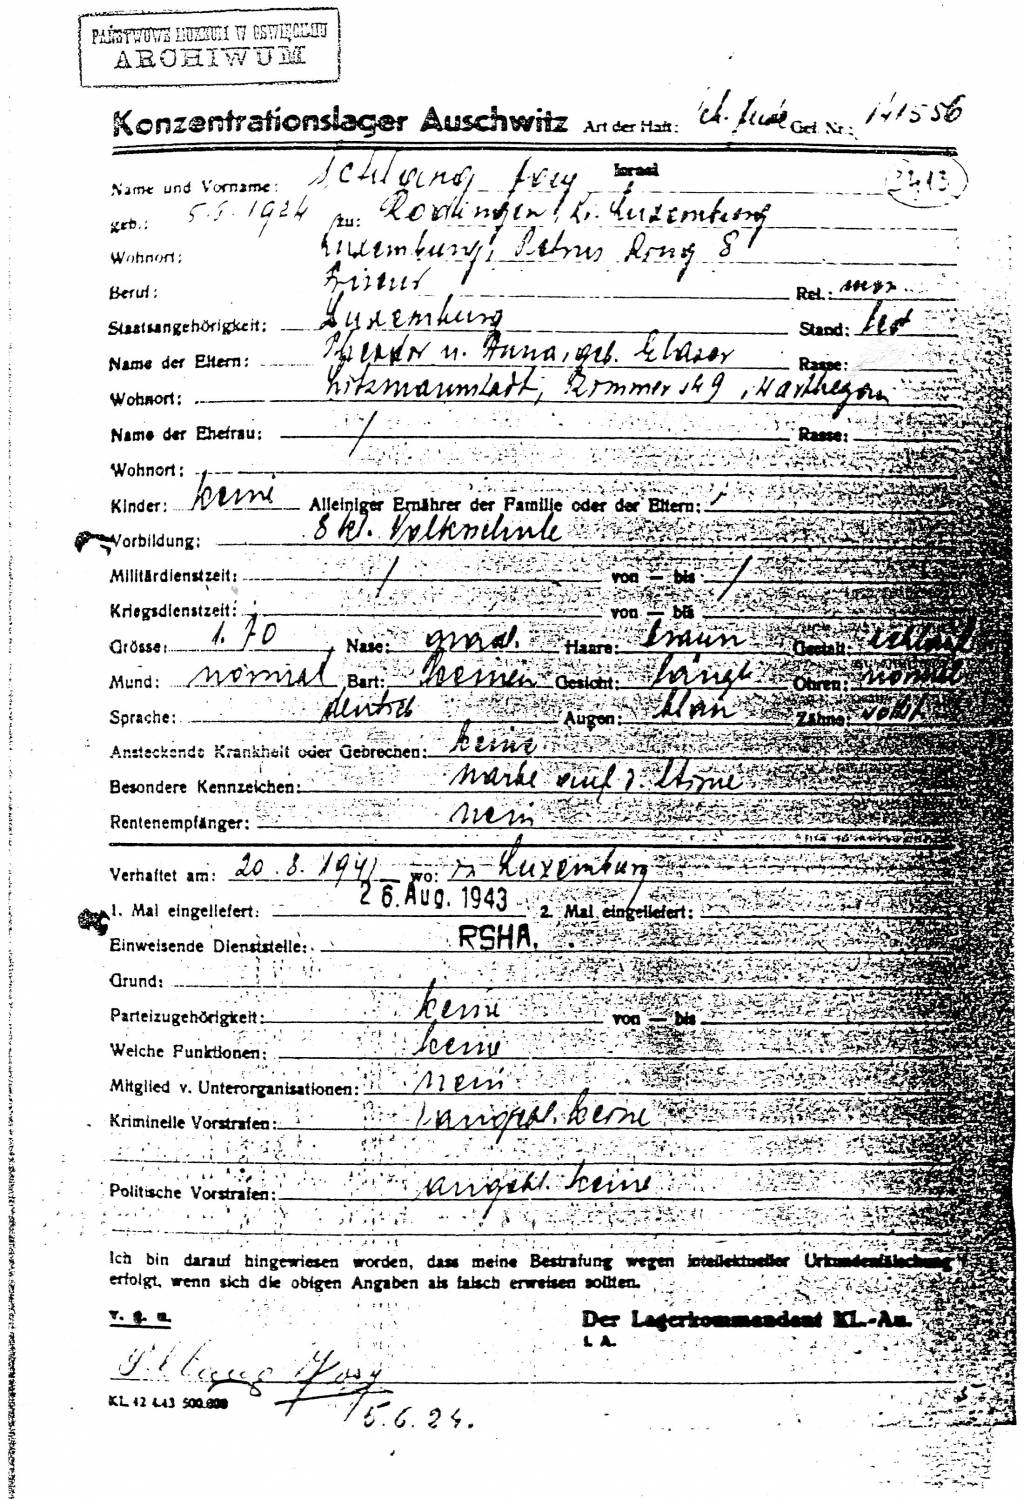 PAŃSTWOWE MUZEUM W OŚWIĘCIMIU
ARCHIWUM
Konzentrationslager Auschwitz Art der Haft: Sch. Jude Gef. Nr.: 141556
Name und Vorname: Schlang Josy Israel 2413
geb.: 5.6.1924 zu: Rodingen, Kr. Luxemburg
Wohnort: Luxemburg, Petrus Ring 8
Beruf: Friseur Rel.: mos.
Staatsangehörigkeit: Luxemburg Stand: led
Name der Eltern: u. Anna, geb. Glaser Rasse:
Wohnort: Litzmannstadt, 9, Warthegau
Name der Ehefrau: / Rasse:
Wohnort:
Kinder: keine Alleiniger Ernährer der Familie oder der Eltern: /
Vorbildung: 8 kl. Volksschule
Militärdienstzeit: / von — bis /
Kriegsdienstzeit: von — bis
Grösse: 1.70 Nase: grad. Haare: braun Gestalt: schlank
Mund: normal Bart: keinen Gesicht: längl. Ohren: normal
Sprache: deutsch Augen: blau Zähne: vollst.
Ansteckende Krankheit oder Gebrechen: keine
Besondere Kennzeichen: Narbe auf d. Stirne
Rentenempfänger: nein
Verhaftet am: 20.8.1941 wo: in Luxemburg
1. Mal eingeliefert: 26. Aug. 1943 2. Mal eingeliefert:
Einweisende Dienststelle: RSHA.
Grund:
Parteizugehörigkeit: keine von — bis
Welche Funktionen: keine
Mitglied v. Unterorganisationen: nein
Kriminelle Vorstrafen: angebl. keine
Politische Vorstrafen: angebl. keine
Ich bin darauf hingewiesen worden, dass meine Bestrafung wegen intellektueller Urkundenfälschung
erfolgt, wenn sich die obigen Angaben als falsch erweisen sollten.
v. g. u. Der Lagerkommandant KL.-Au.
i. A.
Schlang Josy
KL 42 4.43 500.000
5.6.24.